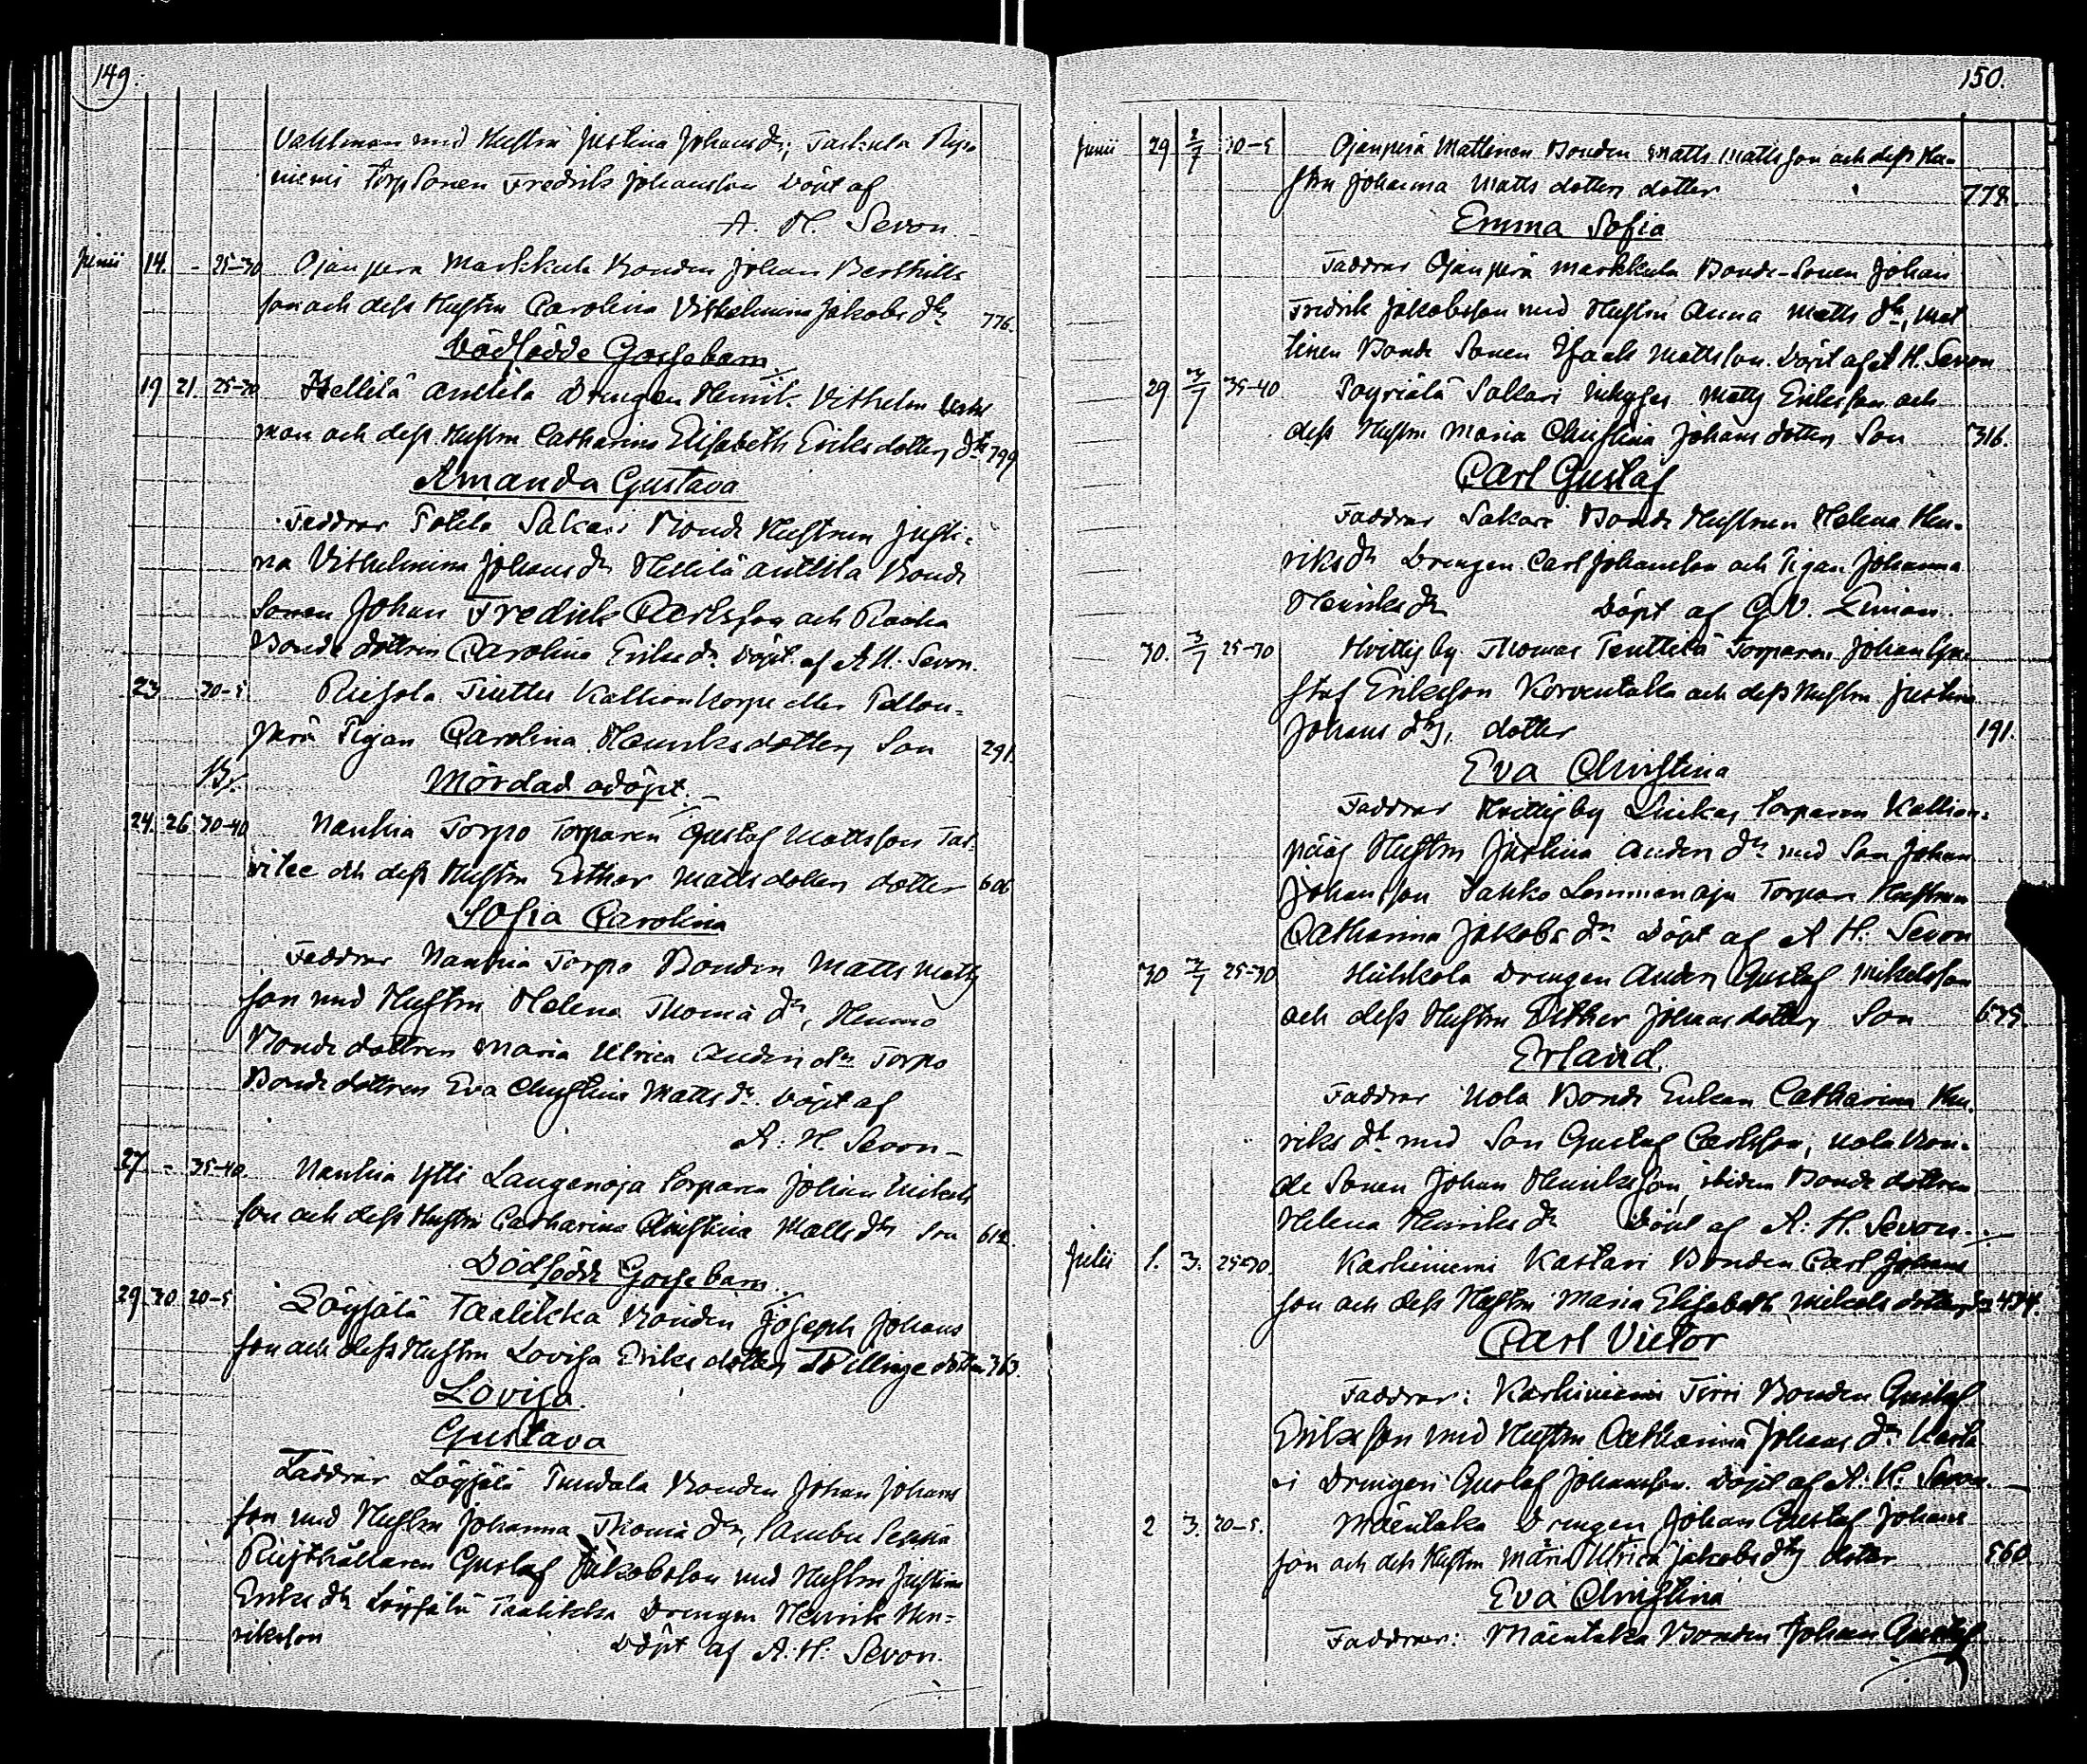 149.
Vahlman med Hustru Justina Johansdr; Tarkula
niemi Torp Sonen Fredrik Johansson Döpt af
A. H. Sevon.
Junii 14. - 25-30 Ojanperä Markkula Bonden Johan Berthills
son och dess Hustru Carolina Vilhelmina Jakobs dr 776.
Dödfödde Gossebarn
19 21 25-30 Hellilä Anttila Drengen Henrik Vilhelm
man och dess Hustru Catharina Elisabeth Eriksdotter, dtr 799
Amanda Gustava
Faddrar Sakari Bonde Hustrun Justi-
na Vilhelmina Johans dr Hellilä Anttila Bonde
Sonen Johan Fredrik Carlsson och
Bonde dottren Carolina Eriks dr. Döpt af A H. Sevon.
23 30-5 Kallionkorpi eller Pellon-
perä Pigan Carolina Henriksdotter, Son 291.
Br. Mördad odöpt.
24. 26 30-40 Nanhia Torpo Torparen Gustaf Mattsson Tal-
vitee och dess Hustru Esther Matts dotter dotter 606
Sofia Carolina
Faddrar Nanhia Torpo Bonden Matts Matts
son med Hustru Helena Thoma dr, Hemmo
Bonde dottren Maria Ulrica Anders dr Torpo
Bonde dottren Eva Christina Matts dr. Döpt af
A: H. Sevon
27 - 35-40. Nanhia Ylli Langenoja Torparen Johan Mikels
son och dess Hustru Catharina Christina Matts dtr Son 612.
Dödfödde Gossebarn
29 30 20-5 Löyjälä Taalikka Bonden Joseph Johans
son och dess Hustru Lovisa Eriks dotter, Tvillinge döttrar 363.
Lovisa.
Gustava
Faddrar Löyjälä Tundala Bonden Johan Johans
son med Hustru Johanna Thoma dr, Seppä
Rusthållaren Gustaf Jakobsson med Hustru Justina
Eriks dr Löyjälä Taalikka Drengen Henrik Hen-
riksson Döpt af A. H. Sevon.
150.
Junii 29 2/7 30-5 Ojanperä Mattinen Bonden Matts Mattsson och dess Hu-
stru Johanna Matts dotter dotter 778.
Emma Sofia
Faddrar Ojanperä Markkula Bonde-Sonen Johan
Fredrik Jakobsson med Hustru Anna Matts dtr, Mat
tinen Bonde Sonen Isaak Mattsson. Döpt af A H. Sevon
29 3/7 35-40 Sakari Inhyses Matts Eriksson och
dess Hustru Maria Christina Johans dotter, Son 316.
Carl Gustaf
Faddrar Sakari Bonde Hustrun Helena Hen-
riks dr Drengen Carl Johansson och Pigan Johanna
Henriks dr Döpt af G. V.
30. 3/7 25-30 Hvittisby Thomas Penttilä Torparen Johan Gu-
staf Eriksson Korventalla och dess Hustru Justina
Johans dtr, dotter 191.
Eva Christina
Faddrar Hvittisby Torparen Kallion-
pääs Hustru Justina Anders dtr med Son Johan
Johansson Jakko Lemmenoja Torpare Hustrun
Catharina Jakobs dr. Döpt af A H. Sevon
30 3/7 25-30 Huhkola Drengen Anders Gustaf Mikelsson
och dess Hustru Esther Johans dotter, Son 675.
Erland.
Faddrar Uola Bonde Enkan Catharina Hen-
riks dtr med Son Gustaf Carlsson, Uola Bon-
de Sonen Johan Henriksson, ibidem Bonde dottren
Helena Henriks dr Döpt af A: H. Sevon.
Julii 1. 3. 25-30. Karhiniemi Kastari Bonden Carl Johans
son och dess Hustru Maria Elisabeth Mikels dotter, Son 434.
Carl Victor
Faddrar: Karhiniemi Tirri Bonden Gustaf
Eriksson med Hustru Catharina Johans dr. Kasta
ri Drengen Gustaf Johansson. Döpt af A: H: Sevon.
2 3. 20-5. Mäentaka Drengen Johan Gustaf Johans
son och dess Hustru Maria Ulrica Jakobs dtr dotter 560
Eva Christina
Faddrar: Mäentaka Bonden Johan Gustaf